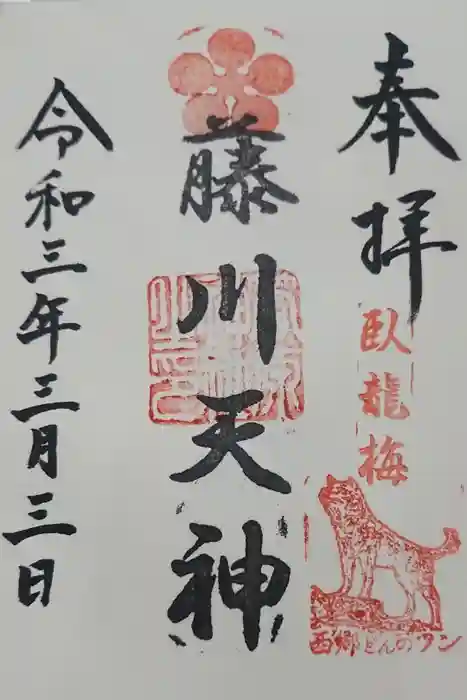 奉拝
臥龍梅
西郷どんのワン
藤川天神
令和三年三月三日